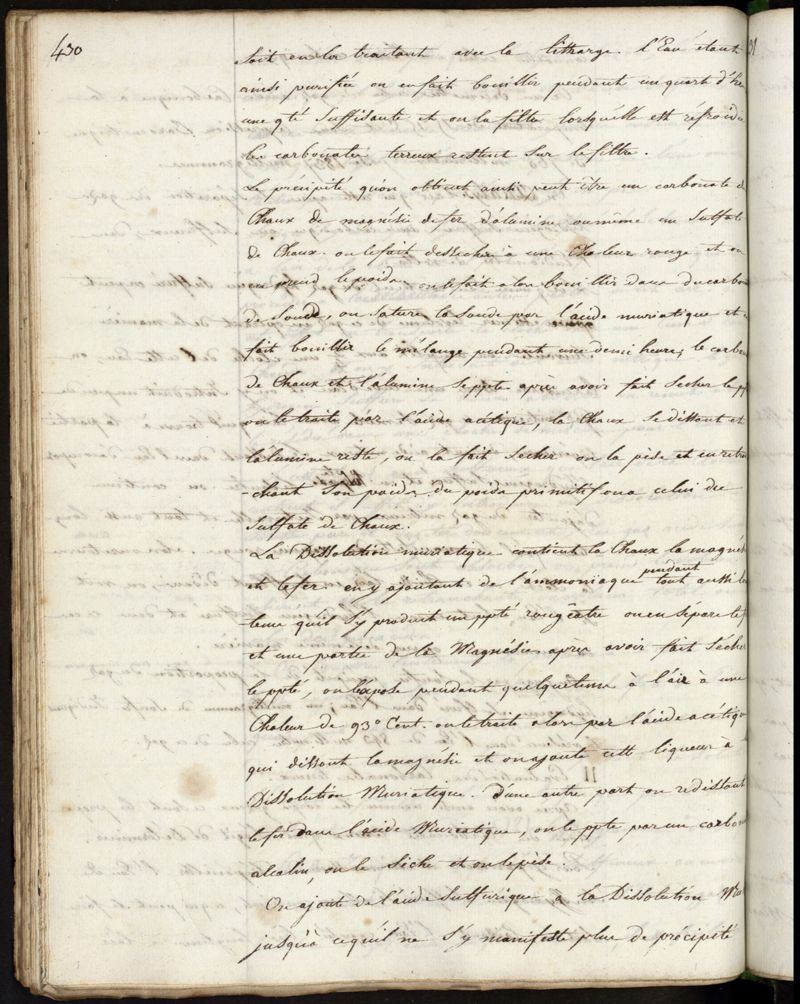 430
Soit en la traitant avec la litharge. L'Eau étant
ainsi purifiée on en fait bouillir pendant un quart d'he
une qté Suffisante et on la filtre lorsqu'elle est réfroidie
les carbonates terreux restent Sur le filtre.
Le présipité qu'on obtient ainsi peut être un carbonate d
Chaux de magnésie de fer d'alumine ou même un Sulfate
de Chaux. on le fait dessecher à une Chaleur rouge et on
en prend le poids on le fait alors bouillir dans du carbon
de Soude, on Sature la Soude par l'acide muriatique et
fait bouillir le mélange pendant une demi heure; le carbon
de Chaux et l'alumine Se ppte après avoir fait Secher le pp
on le traite par l'acide acétique, la Chaux Se dissout et
l'alumine reste, on la fait Secher on la pèse et en retran
-chant Son poids du poids primitif on a celui du
Sulfate de Chaux.
La Dissolution muriatique contient la Chaux la magné
et le fer. en y ajoutant de l'ammoniaque pendant tout aussi long
tems qu'il S'y produit un ppté rougeâtre on en Separe le f
et une partie de la Magnésie après avoir fait Sécher
le ppté, on l'expose pendant quelque tems à l'air à une
Chaleur de 93° Cent. on le traite alors par l'acide acétiq
qui dissout la magnésie et on ajoute cette liqueur à
Dissolution Muriatique. d'une autre part on redissout
le fer dans l'acide Muriatique, on le ppte par un carbon
alcalin on le Sèche et on le pèse.
On ajoute de l'acide Sulfurique à la Dissolution Mur
jusqu'à ce qu'il ne S'y manifeste plus de précipité